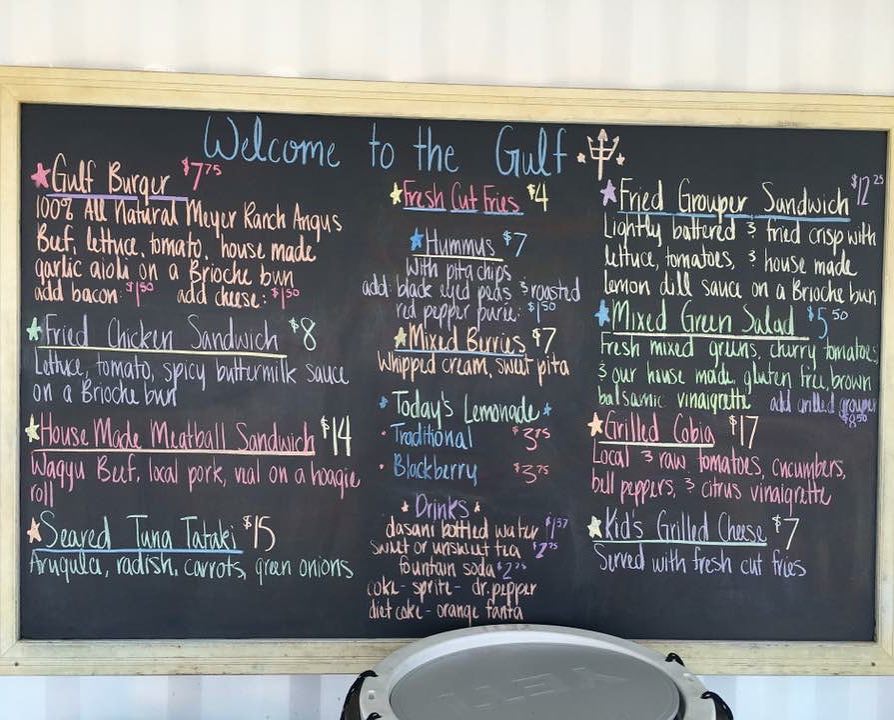 Welcome to the Gulf
Gulf Burger $7.75
100% All Natural Meyer Ranch Angus
Beef, lettuce, tomato, house made
garlic aioli on a Brioche bun
add bacon: $1.50 add cheese: $1.50
Fried Chicken Sandwich $8
Lettuce, tomato, spicy buttermilk sauce
on a Brioche bun
House Made Meatball Sandwich $14
Wagyu Beef, local pork, veal on a hoagie
roll
Seared Tuna Tataki $15
Arugula, radish, carrots, green onions
Fresh Cut Fries $4
Hummus $7
With pita chips
add: black eyed peas & roasted
red pepper puree: $1.50
Mixed Berries $7
Whipped cream, sweet pita
Today's Lemonade
• Traditional $3.75
• Blackberry $3.75
Drinks
dasani bottled water $1.57
sweet or unsweet tea $2.75
fountain soda $2.75
coke - sprite - dr. pepper
diet coke - orange fanta
Fried Grouper Sandwich $12.25
Lightly battered & fried crisp with
lettuce, tomatoes, & house made
lemon dill sauce on a Brioche bun
Mixed Green Salad $5.50
Fresh mixed greens, cherry tomatoes
& our house made, gluten free, brown
balsamic vinaigrette add grilled grouper
$8.50
Grilled Cobia $17
Local & raw tomatoes, cucumbers,
bell peppers, & citrus vinaigrette
Kid's Grilled Cheese $7
Served with fresh cut fries
YETI